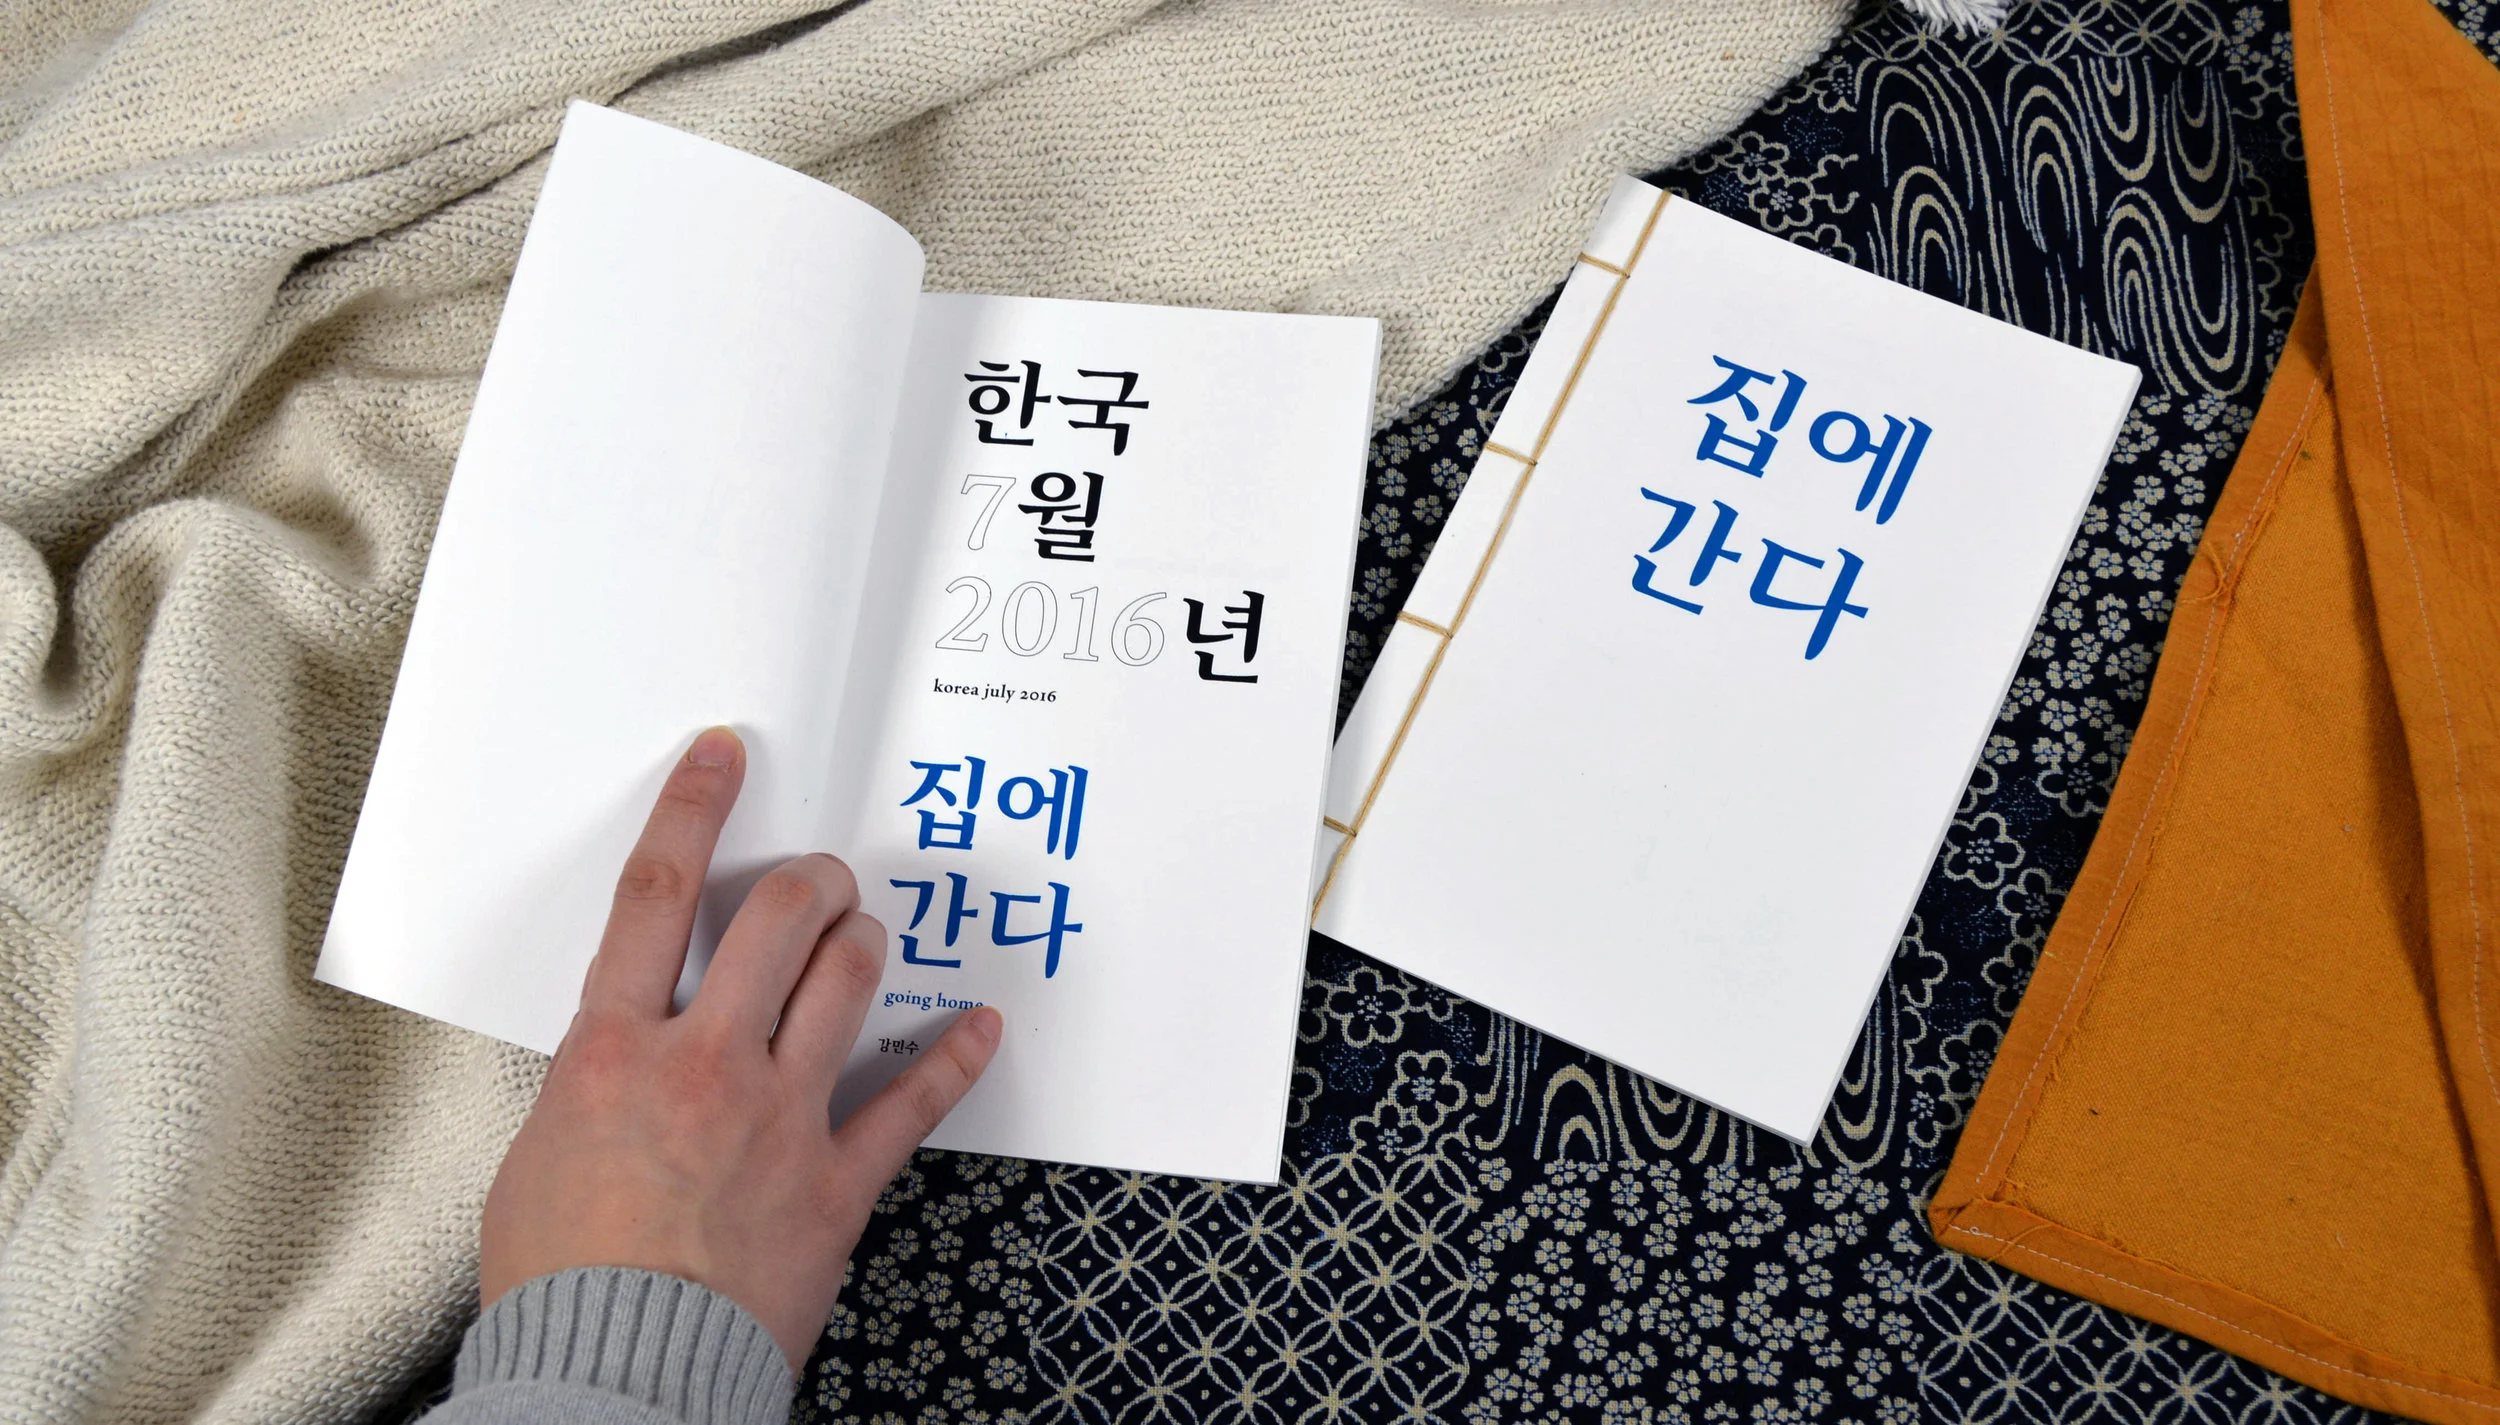 한국
7월
2016년
korea july 2016
집에
간다
going home
강민수
집에
간다